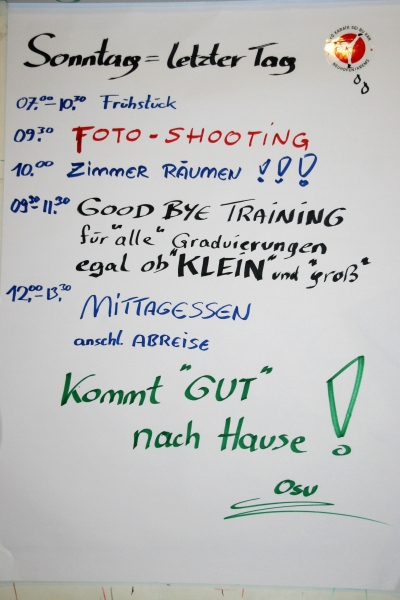 Sonntag = letzter Tag
07.00-10.30 Frühstück
09.30 FOTO-SHOOTING
10.00 ZIMMER RÄUMEN !!!
09.30-11.30 GOOD BYE TRAINING
für "alle" Graduierungen
egal ob "KLEIN" und "groß"
12.00-13.30 MITTAGESSEN
anschl. ABREISE
Kommt "GUT"
nach Hause !
Osu